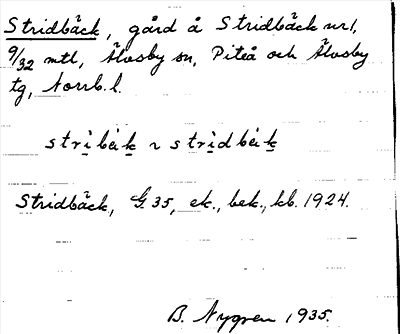 Stridbäck, gård å Stridbäck nr 1,
9/32 mtl, Älvsby sn, Piteå och Älvsby
tg, Norrb. l.
Stridbäck, G. 35, ek., bek., kb. 1924.
B. Nygren 1935.